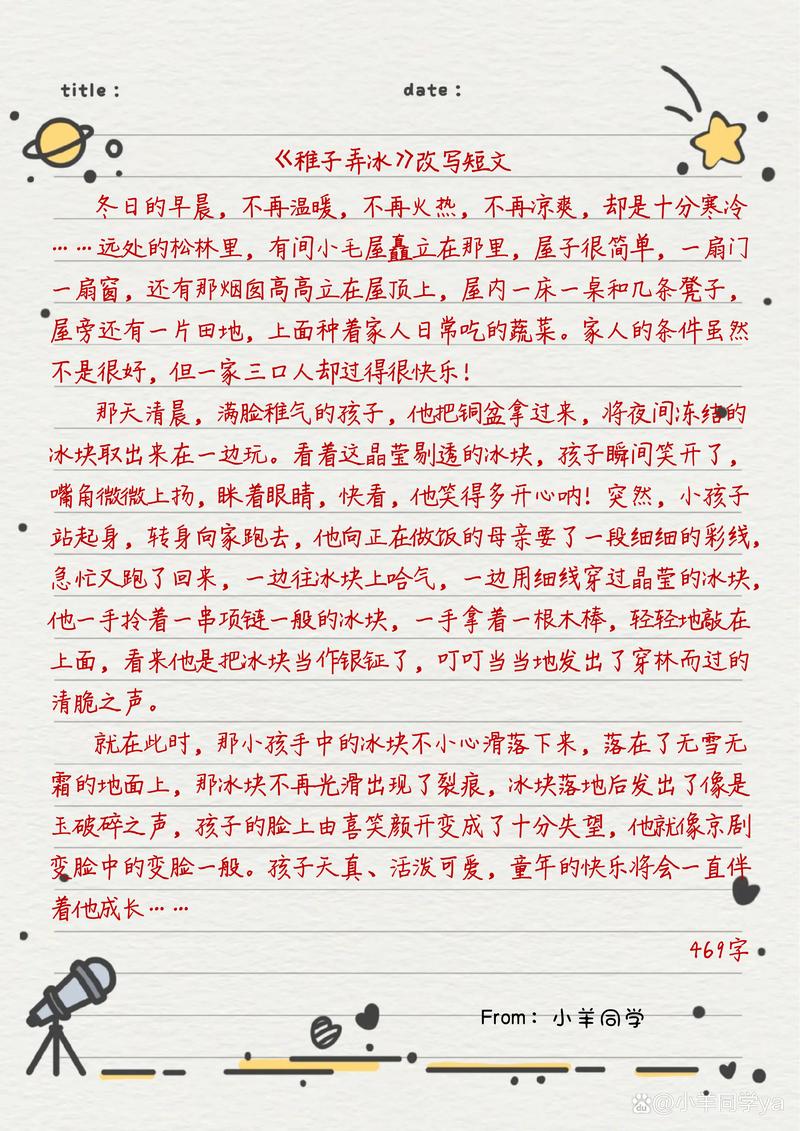 title：
date：
《稚子弄冰》改写短文
冬日的早晨，不再温暖，不再火热，不再凉爽，却是十分寒冷
……远处的松林里，有间小毛屋矗立在那里，屋子很简单，一扇门
一扇窗，还有那烟囱高高立在屋顶上，屋内一床一桌和几条凳子，
屋旁还有一片田地，上面种着家人日常吃的蔬菜。家人的条件虽然
不是很好，但一家三口人却过得很快乐！
那天清晨，满脸稚气的孩子，他把铜盆拿过来，将夜间冻结的
冰块取出来在一边玩。看着这晶莹剔透的冰块，孩子瞬间笑开了，
嘴角微微上扬，眯着眼睛，快看，他笑得多开心呐！突然，小孩子
站起身，转身向家跑去，他向正在做饭的母亲要了一段细细的彩线，
急忙又跑了回来，一边往冰块上哈气，一边用细线穿过晶莹的冰块，
他一手拎着一串项链一般的冰块，一手拿着一根木棒，轻轻地敲在
上面，看来他是把冰块当作银钲了，叮叮当当地发出了穿林而过的
清脆之声。
就在此时，那小孩手中的冰块不小心滑落下来，落在了无雪无
霜的地面上，那冰块不再光滑出现了裂痕，冰块落地后发出了像是
玉破碎之声，孩子的脸上由喜笑颜开变成了十分失望，他就像京剧
变脸中的变脸一般。孩子天真、活泼可爱，童年的快乐将会一直伴
着他成长……
469字
From：小羊同学
@小羊同学ya